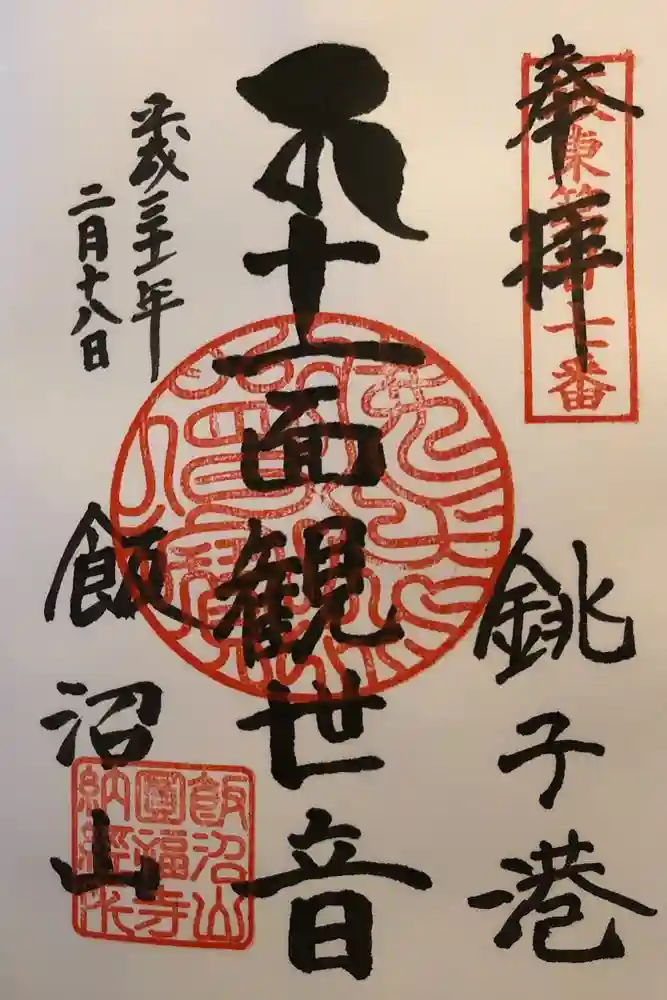 奉拝
坂東第廿七番
銚子港
十一面観世音
平成三十一年
二月十八日
飯沼山
飯沼山
圓福寺
納經